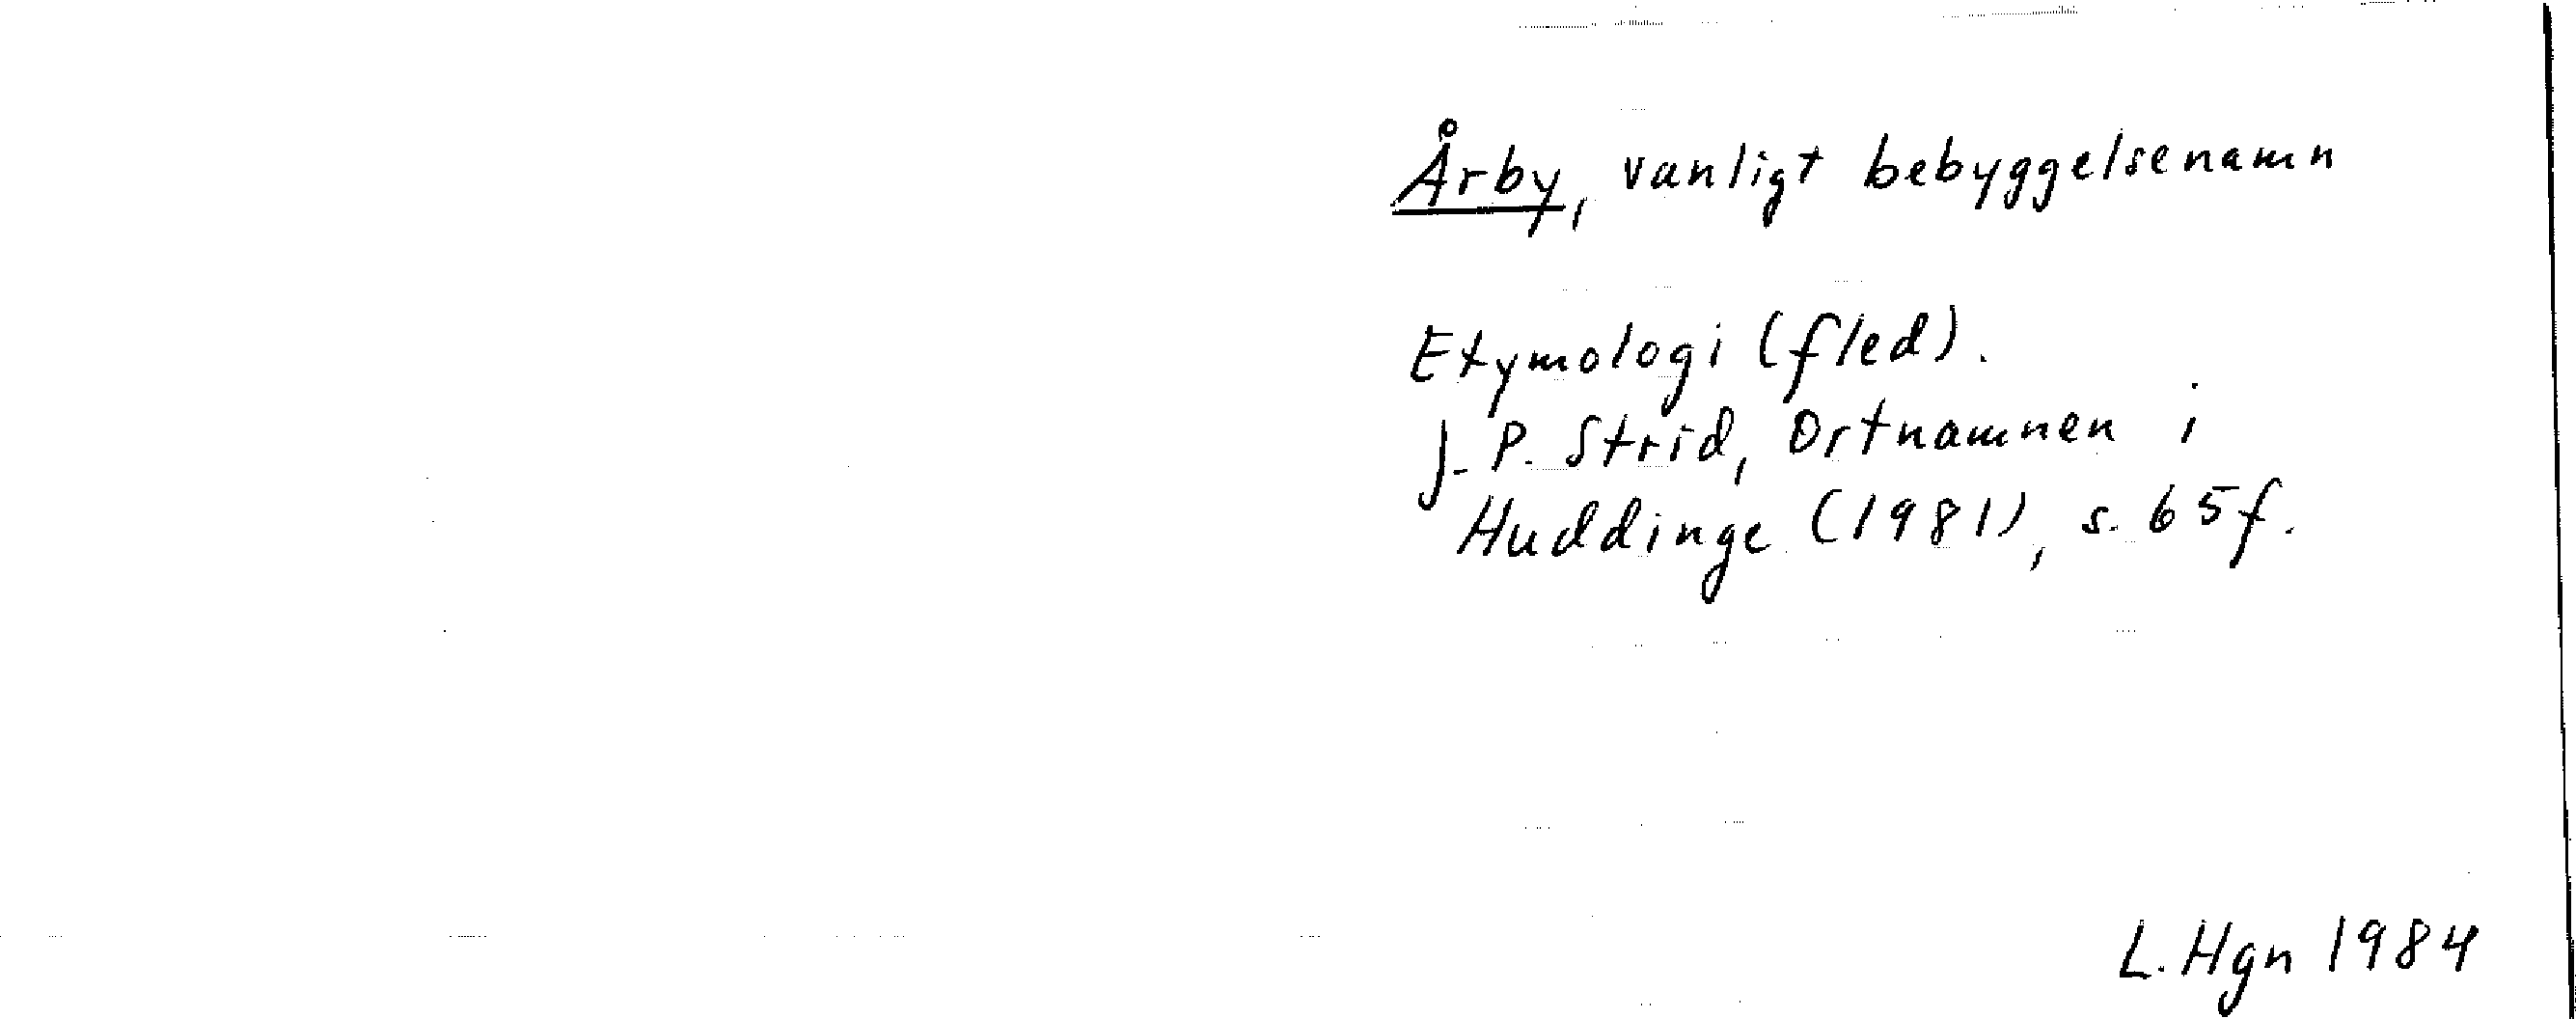 Årby, vanligt bebyggelsenamn
Etymologi (fled).
J. P. Strid, Ortnamnen i
Huddinge (1981), s. 65f.
L. Hgn 1984